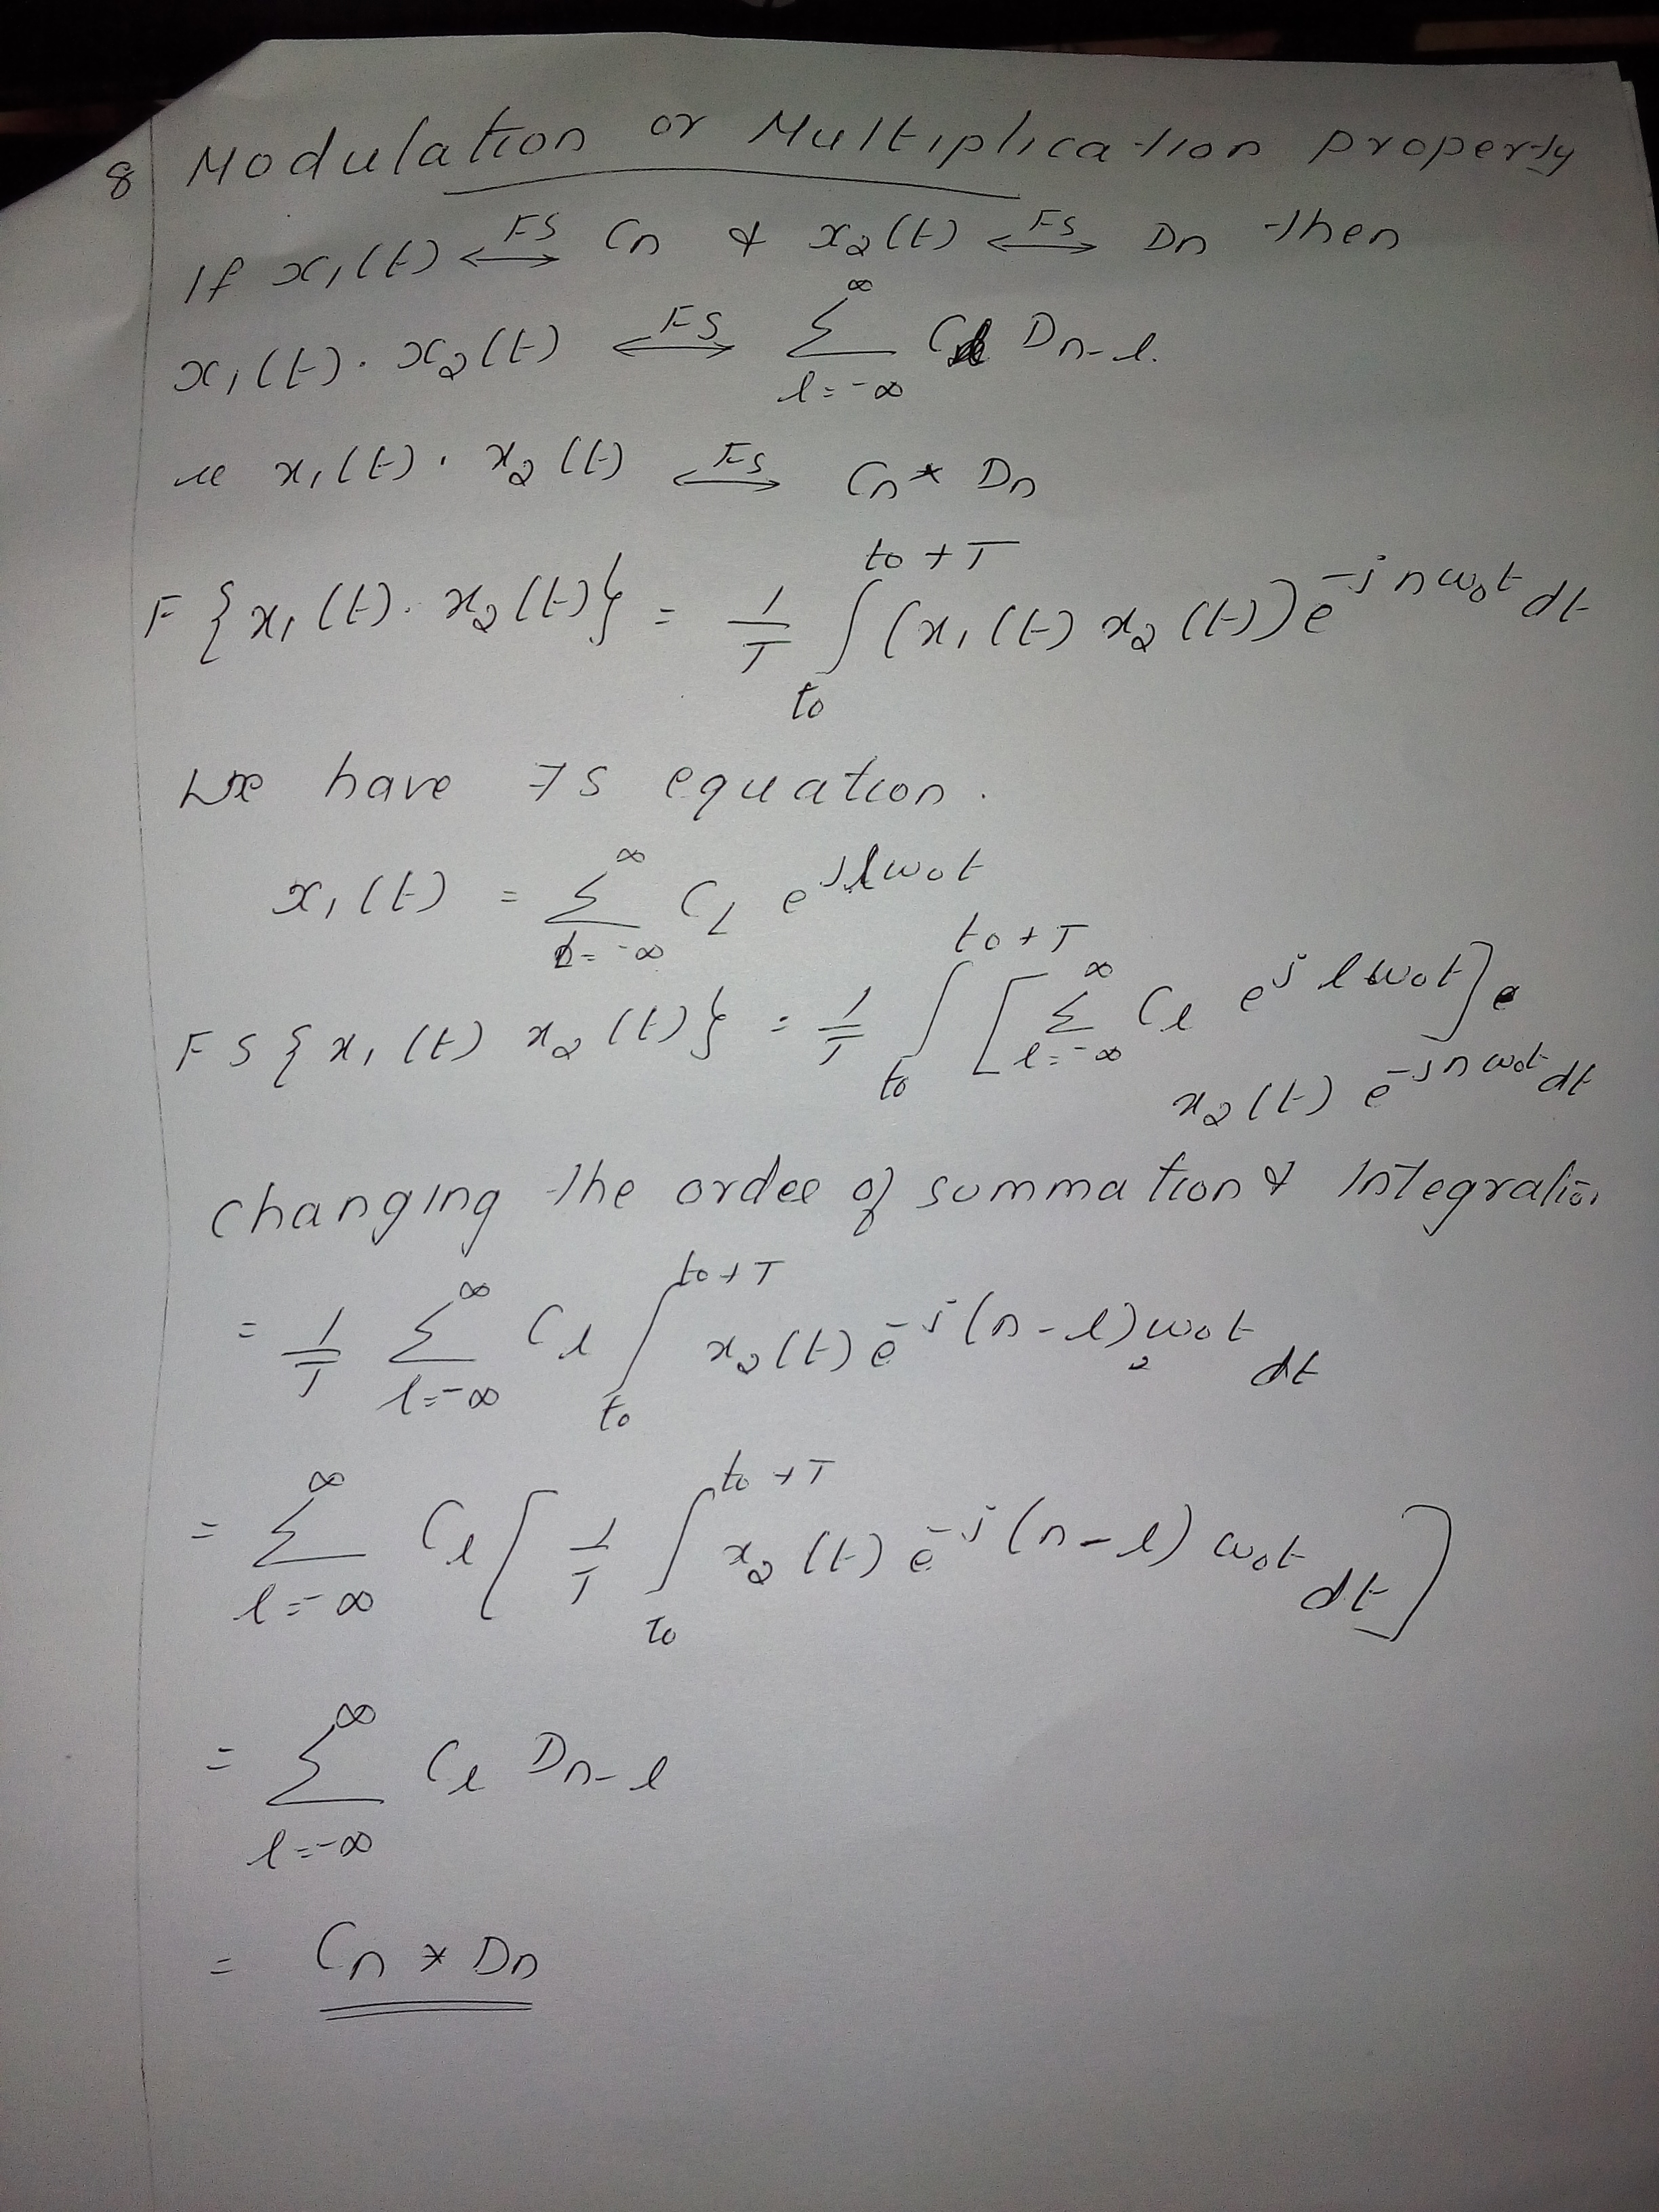 8 Modulation or Multiplication property
If x₁(t) ⟷FS Cn & x₂(t) ⟷FS Dn then
x₁(t) · x₂(t) ⟷FS ∑_{l=-∞}^{∞} Cl Dn-l
ie x₁(t) · x₂(t) ⟷FS Cn * Dn
F{x₁(t) · x₂(t)} = 1/T ∫_{t₀}^{t₀+T} (x₁(t) x₂(t)) e^{-jnω₀t} dt
we have FS equation.
x₁(t) = ∑_{l=-∞}^{∞} C_l e^{jlω₀t}
FS{x₁(t) x₂(t)} = 1/T ∫_{t₀}^{t₀+T} [∑_{l=-∞}^{∞} Cl e^{jlω₀t}]
x₂(t) e^{-jnω₀t} dt
Changing the order of summation &
= 1/T ∑_{l=-∞}^{∞} Cl ∫_{t₀}^{t₀+T} x₂(t) e^{-j(n-l)ω₀t} dt
= ∑_{l=-∞}^{∞} Cl [1/T ∫_{t₀}^{t₀+T} x₂(t) e^{-j(n-l)ω₀t} dt]
= ∑_{l=-∞}^{∞} Cl Dn-l
= Cn * Dn